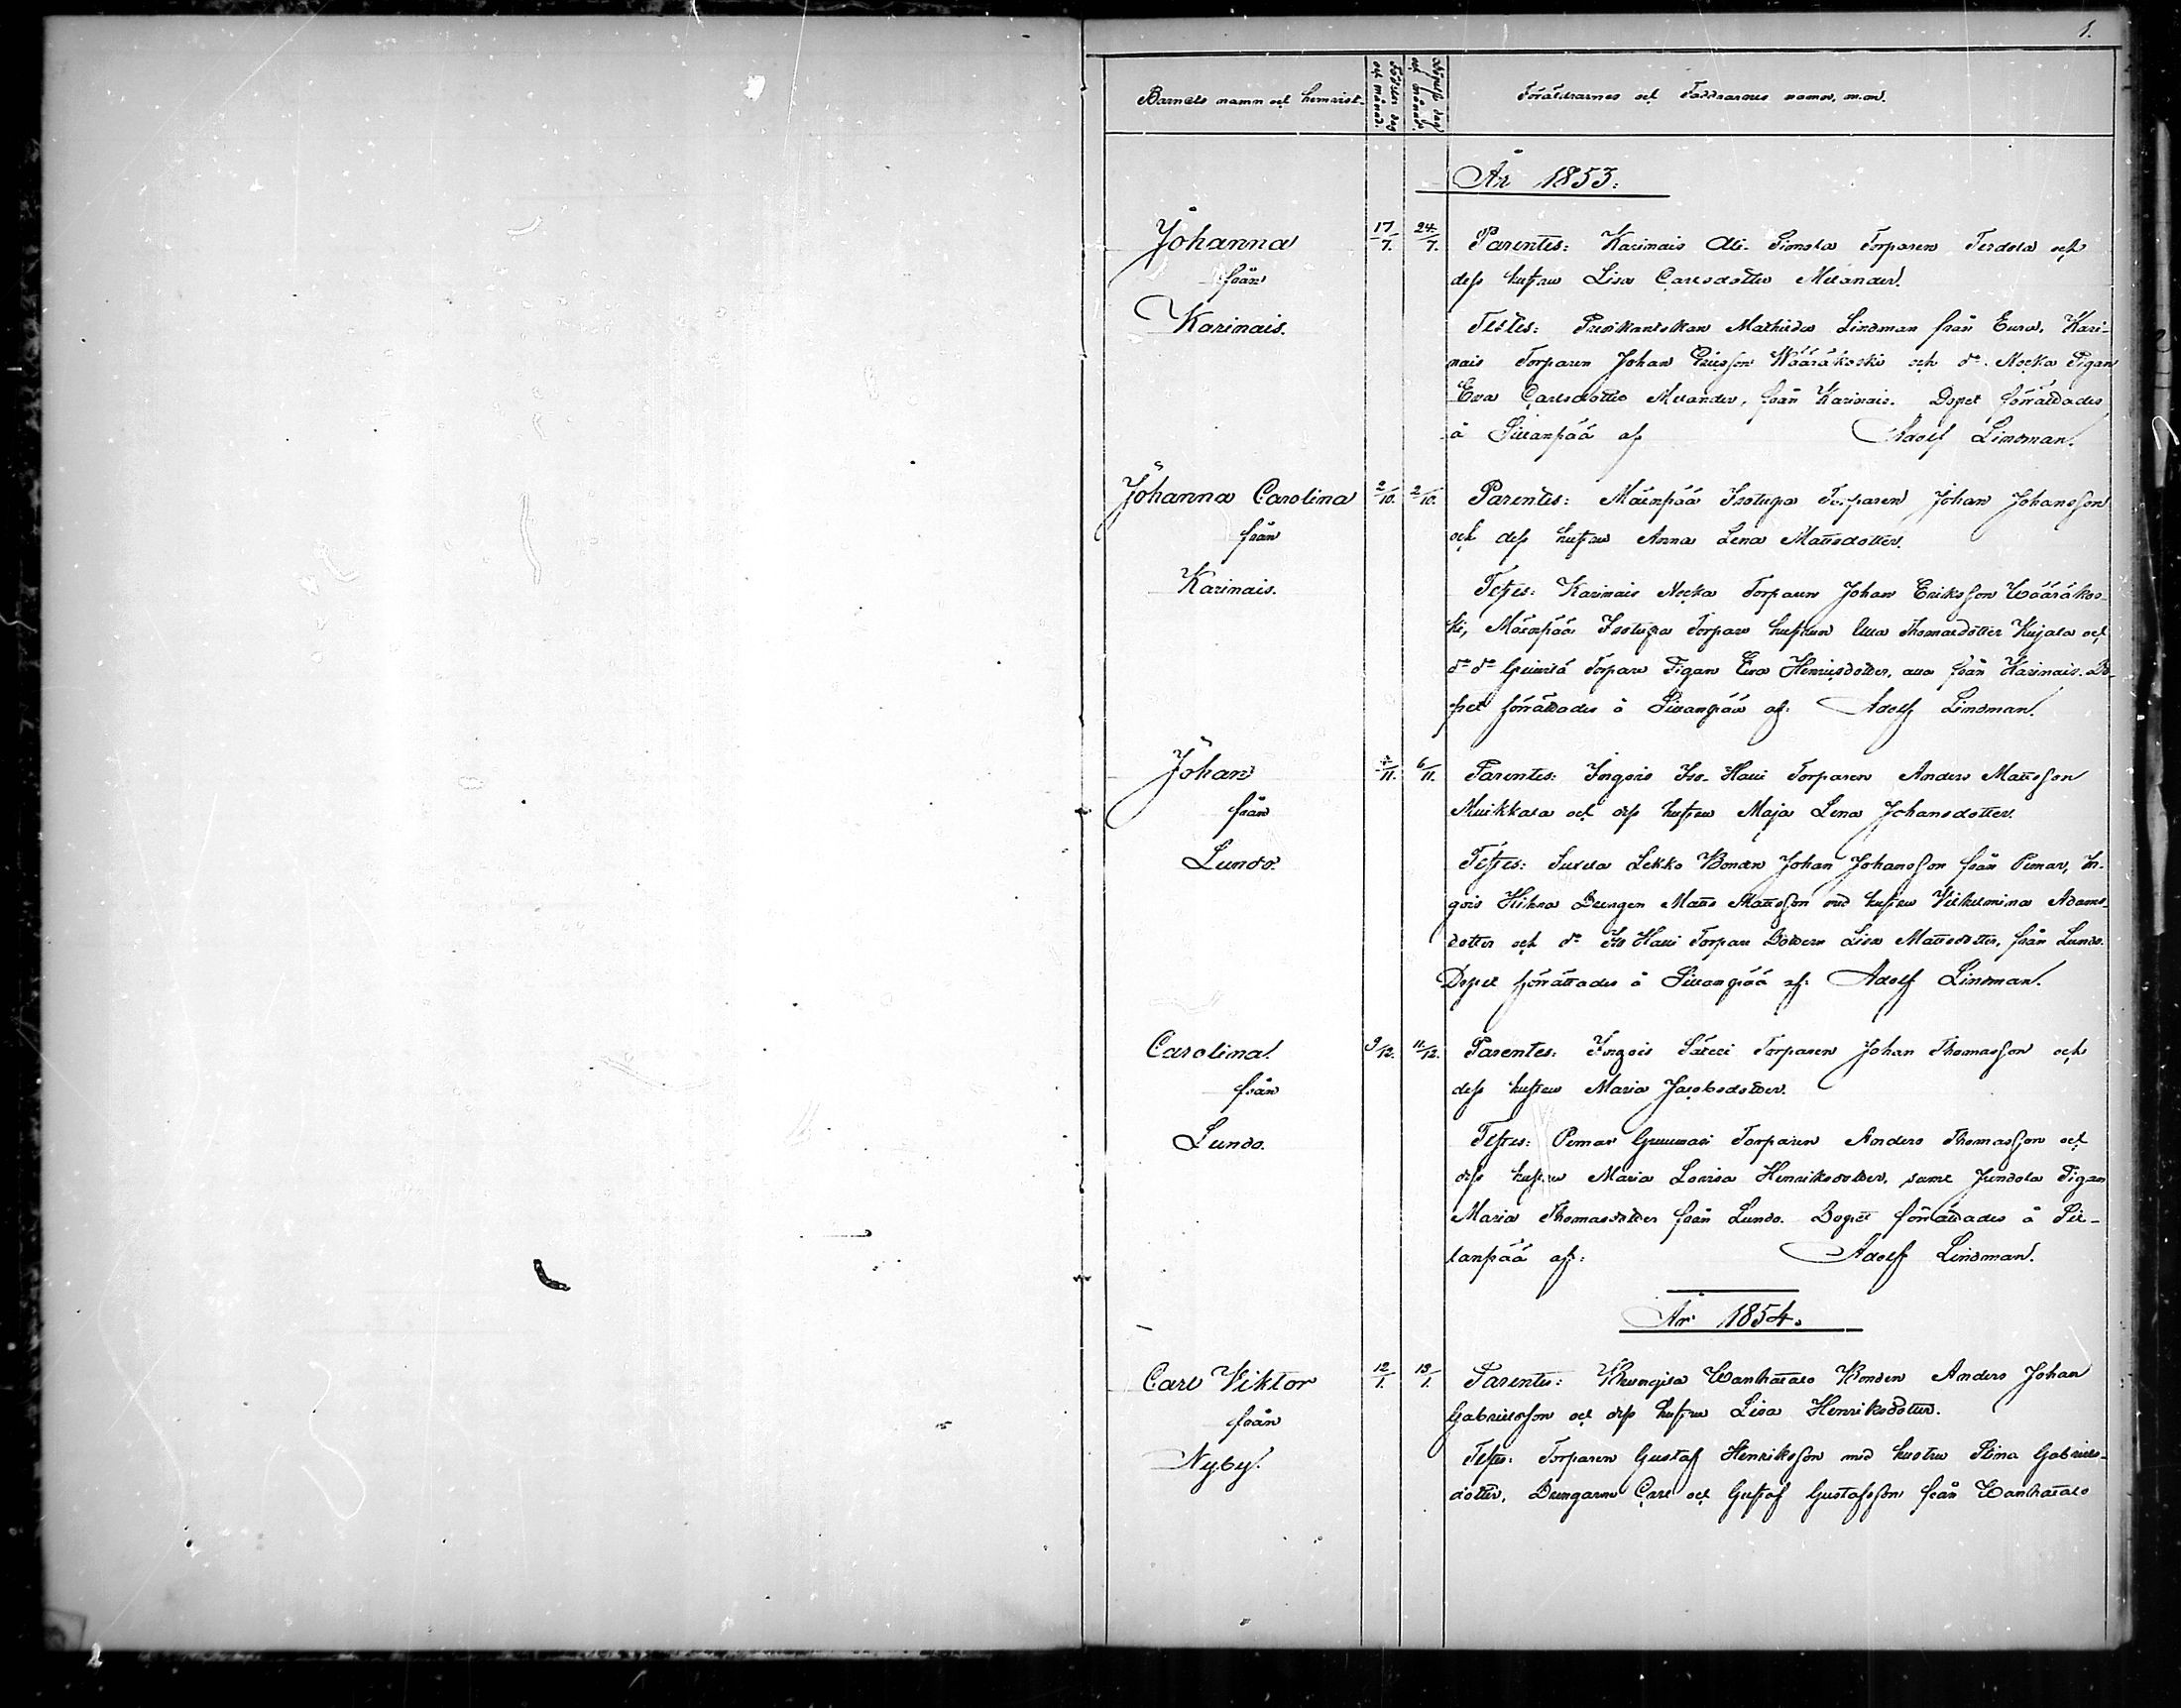 1.
Barnets namn och hemvist.
Födelse dag och månad.
Döpelse dag och månad.
Föräldrarnes och Faddrarnes namn, m.m.
År 1853.
Johanna 17/7. 24/7. Parentes: Karinais Ali-Simola Torparen Terdola och
från dess hustru Lisa Carlsdotter Melander.
Karinais. Testes: Predikantskan Mathilda Lindman från Eura, Kari-
nais Torparen Johan Ericsson Wääräkoski och do. Nocka Pigan
Eva Carlsdotter Melander, från Karinais. Dopet förrättades
å Sillanpää af Adolf Lindman.
Johanna Carolina 2/10. 2/10. Parentes: Mäenpää Isotupa Torparen Johan Johansson
från och dess hustru Anna Lena Mattsdotter.
Karinais. Testes: Karinais Nocka Torparen Johan Eriksson Wääräkos-
ki, Mäenpää Isotupa Torpare hustrun Ulla Thomasdotter Kujala och
do do Torpare Pigan Eva Henricsdotter, alla från Karinais. Do-
pet förrättades å Sillanpää af: Adolf Lindman.
Johan /11. 6/11. Parentes: Ingois Iso-Havi Torparen Anders Mattsson
från Muikkala och dess hustru Maja Lena Johansdotter.
Lundo. Testes: Lekko Bonden Johan Johansson från Pemar, In-
gois Hihna Drengen Matts Mattsson med hustru Vilhelmina Adams-
dotter och do Iso Havi Torpare Dottren Lisa Mattsdotter, från Lundo.
Dopet förrättades å Sillanpää af: Adolf Lindman.
Carolina. 9/12. 11/12. Parentes: Ingois Torparen Johan Thomasson och
från dess hustru Maria Jacobsdotter.
Lundo. Testes: Pemar Torparen Anders Thomasson och
dess hustru Maria Lovisa Henriksdotter, samt Jundola Pigan
Maria Thomasdotter från Lundo. Dopet förrättades å Sil-
lanpää af: Adolf Lindman.
År 1854.
Carl Viktor 12/1. 13/1. Parentes: Wanhatalo Bonden Anders Johan
från Gabrielsson och dess hustru Lisa Henriksdotter.
Nyby. Testes: Torparen Gustaf Henriksson med hustru Stina Gabriels-
dotter, Drengarne Carl och Gustaf Gustafsson från Wanhatalo